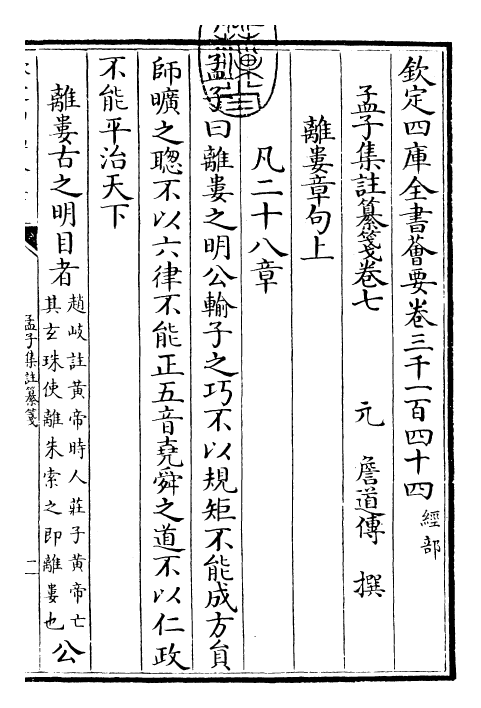 欽定四庫全書薈要卷三千一百四十四 經部
孟子集註纂箋卷七 元 詹道傳 撰
離婁章句上
凡二十八章
孟子曰離婁之明公輸子之巧不以規矩不能成方員
師曠之聰不以六律不能正五音堯舜之道不以仁政
不能平治天下
離婁古之明目者
趙岐註黃帝時人莊子黃帝亡
其玄珠使離朱索之即離婁也
公
孟子集註纂箋